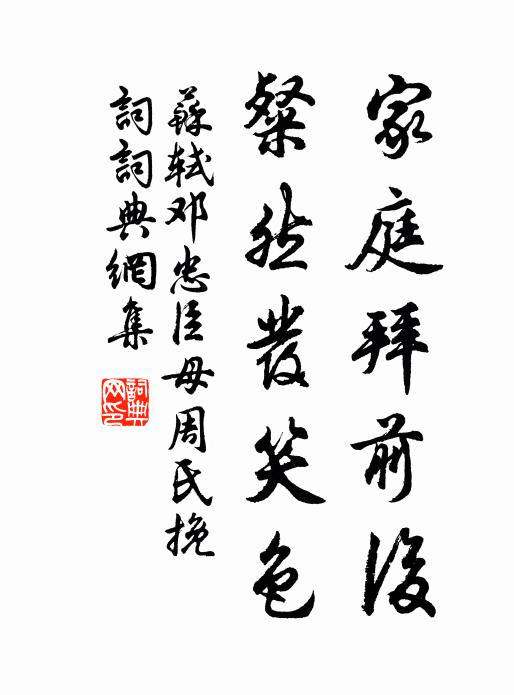 家庭拜前後
粲然發笑色
蘇軾邓忠臣母周氏挽
詞詞典網集
詞典網印